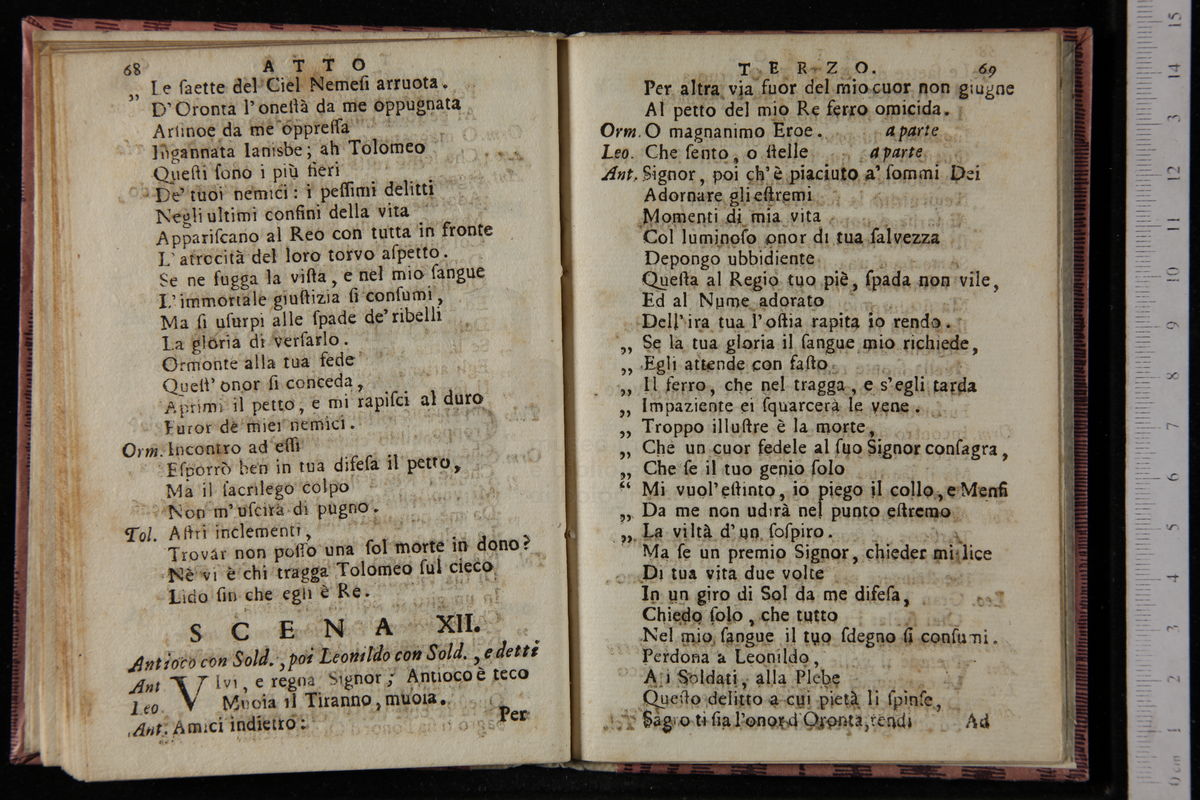 68 ATTO
„ Le ſaette del Ciel Nemeſi arruota.
D'Oronta l'oneſtà da me oppugnata
Arſinoe da me oppreſſa
Ingannata Ianisbe; ah Tolomeo
Queſti ſono i più fieri
De' tuoi nemici: i peſſimi delitti
Negli ultimi confini della vita
Appariſcano al Reo con tutta in fronte
L'atrocità del loro torvo aſpetto.
Se ne fugga la viſta, e nel mio ſangue
L'immortale giuſtizia ſi conſumi,
Ma ſi uſurpi alle ſpade de' ribelli
La gloria di verſarlo.
Ormonte alla tua fede
Queſt' onor ſi conceda,
Aprimi il petto, e mi rapiſci al duro
Furor de miei nemici.
Orm. Incontro ad eſſi
Eſporrò ben in tua difeſa il petto,
Ma il ſacrilego colpo
Non m'uſcirà di pugno.
Tol. Aſtri inclementi,
Trovar non poſſo una ſol morte in dono?
Nè vi è chi tragga Tolomeo ſul cieco
Lido ſin che egli è Re.
SCENA XII.
Antioco con Sold., poi Leonildo con Sold., e detti
Ant VIvi, e regna Signor; Antioco è teco
Leo. Muoia il Tiranno, muoia.
Ant. Amici indietro:
Per
TERZO. 69
Per altra via fuor del mio cuor non giugne
Al petto del mio Re ferro omicida.
Orm. O magnanimo Eroe. a parte
Leo. Che ſento, o ſtelle a parte
Ant. Signor, poi ch'è piaciuto a' ſommi Dei
Adornare gli eſtremi
Momenti di mia vita
Col luminoſo onor di tua ſalvezza
Depongo ubbidiente
Queſta al Regio tuo piè, ſpada non vile,
Ed al Nume adorato
Dell'ira tua l'oſtia rapita io rendo.
„ Se la tua gloria il ſangue mio richiede,
„ Egli attende con faſto
„ Il ferro, che nel tragga, e s'egli tarda
„ Impaziente ei ſquarcerà le vene.
„ Troppo illuſtre è la morte,
„ Che un cuor fedele al ſuo Signor conſagra,
„ Che ſe il tuo genio ſolo
“ Mi vuol'eſtinto, io piego il collo, e Menfi
„ Da me non udirà nel punto eſtremo
„ La viltà d'un ſoſpiro.
Ma ſe un premio Signor, chieder mi lice
Di tua vita due volte
In un giro di Sol da me difeſa,
Chiedo ſolo, che tutto
Nel mio ſangue il tuo ſdegno ſi conſumi.
Perdona a Leonildo,
A i Soldati, alla Plebe
Queſto delitto a cui pietà li ſpinſe,
Sagro ti ſia l'onor d'Oronta, rendi
Ad